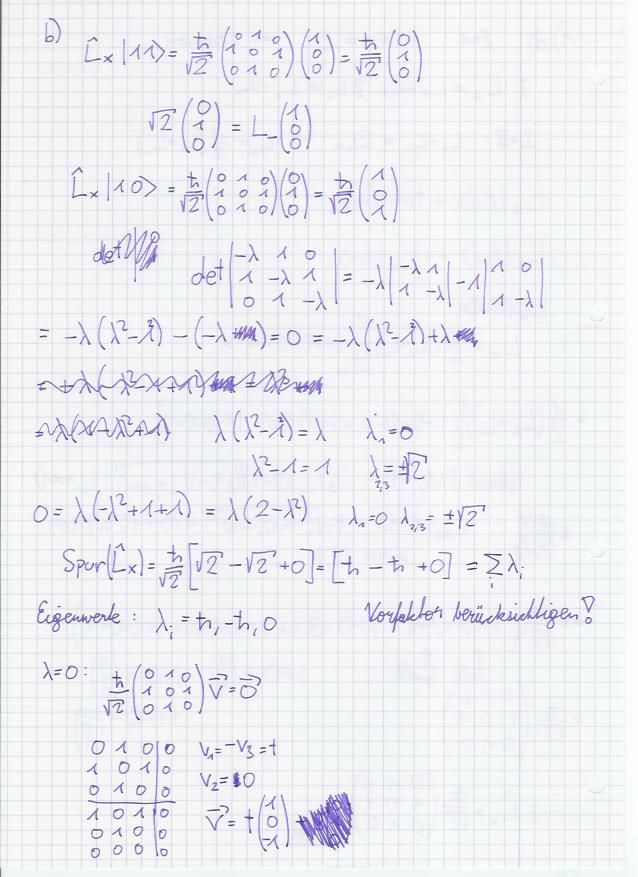 b) L̂ₓ|11> = ħ/√2 (0 1 0; 1 0 1; 0 1 0) (1; 0; 0) = ħ/√2 (0; 1; 0)
√2 (0; 1; 0) = L₋ (1; 0; 0)
L̂ₓ|10> = ħ/√2 (0 1 0; 1 0 1; 0 1 0) (0; 1; 0) = ħ/√2 (1; 0; 1)
det det |-λ 1 0; 1 -λ 1; 0 1 -λ| = -λ |-λ 1; 1 -λ| - 1 |1 0; 1 -λ|
= -λ(λ²-1²) - (-λ) = 0 = -λ(λ²-1²) + λ
λ(λ²-1²) = λ λ₁ = 0
λ²-1 = 1 λ₂,₃ = ±√2
0 = λ(-λ²+1+1) = λ(2-λ²) λ₁=0 λ₂,₃ = ±√2
Spur(L̂ₓ) = ħ/√2 [√2 - √2 + 0] = [ħ - ħ + 0] = ∑ᵢ λᵢ
Eigenwerte: λᵢ = ħ, -ħ, 0 Vorfaktor berücksichtigen!
λ=0: ħ/√2 (0 1 0; 1 0 1; 0 1 0) v⃗ = 0⃗
0 1 0 | 0 v₁ = -v₃ = t
1 0 1 | 0 v₂ = 0
0 1 0 | 0
1 0 1 | 0 v⃗ = t (1; 0; -1)
0 1 0 | 0
0 0 0 | 0